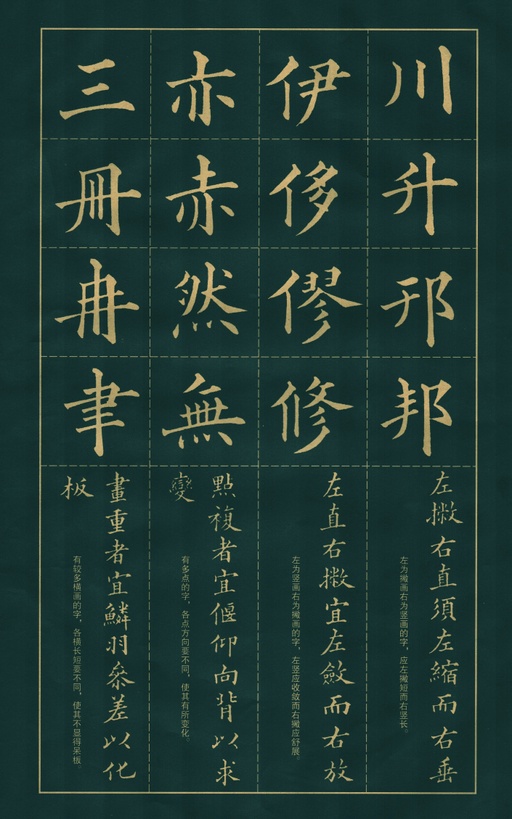 川升邘邦
左撇右直須左縮而右垂
左为撇画右为竖画的字，应左撇短而右竖长。
伊侈僇修
左直右撇宜左斂而右放
左为竖画右为撇画的字，左竖应收敛而右撇应舒展。
亦赤然無
點複者宜偃仰向背以求
變
有多点的字，各点方向要不同，使其有所变化。
三冊冉聿
畫重者宜鱗羽參差以化
板
有较多横画的字，各横长短要不同，使其不显得呆板。